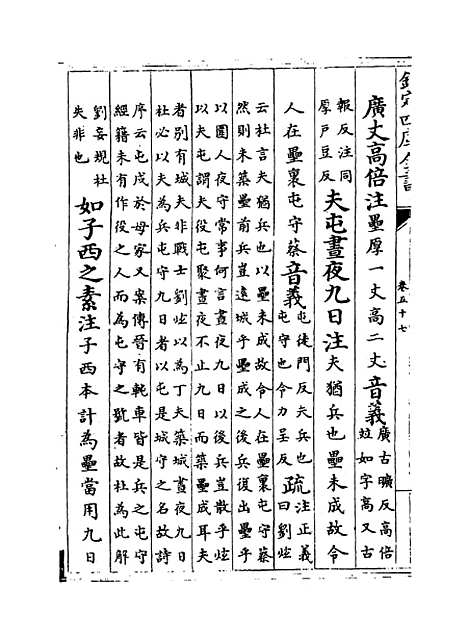 欽定四庫全書
卷五十七
廣丈高倍注壘厚一丈高二丈音義廣古曠反高倍
竝如字高又古
報反注同
厚戶豆反夫屯晝夜九日注夫猶兵也壘未成故令
人在壘裏屯守蔡音義屯徒門反夫兵也
屯守也令力呈反疏注正義
曰劉炫
云社言夫猶兵也以壘未成故令人在壘裏屯守蔡
然則未築壘前兵豈遠城乎壘成之後兵復出壘乎
以圍人夜守常事何言晝夜九日以後兵豈散乎炫
以夫屯謂夫役屯聚晝夜不止九日而築壘成耳夫
者別有城夫非戰士劉炫以為丁夫築城晝夜九日
社必以夫為兵屯守九日者以屯是城守之名故詩
序云屯戍於母家又案傳晉有軘車皆是兵之屯守
經籍未有作役之人而為屯守之者故杜為此解
劉妄規杜
失非也如子西之素注子西本計為壘當用九日